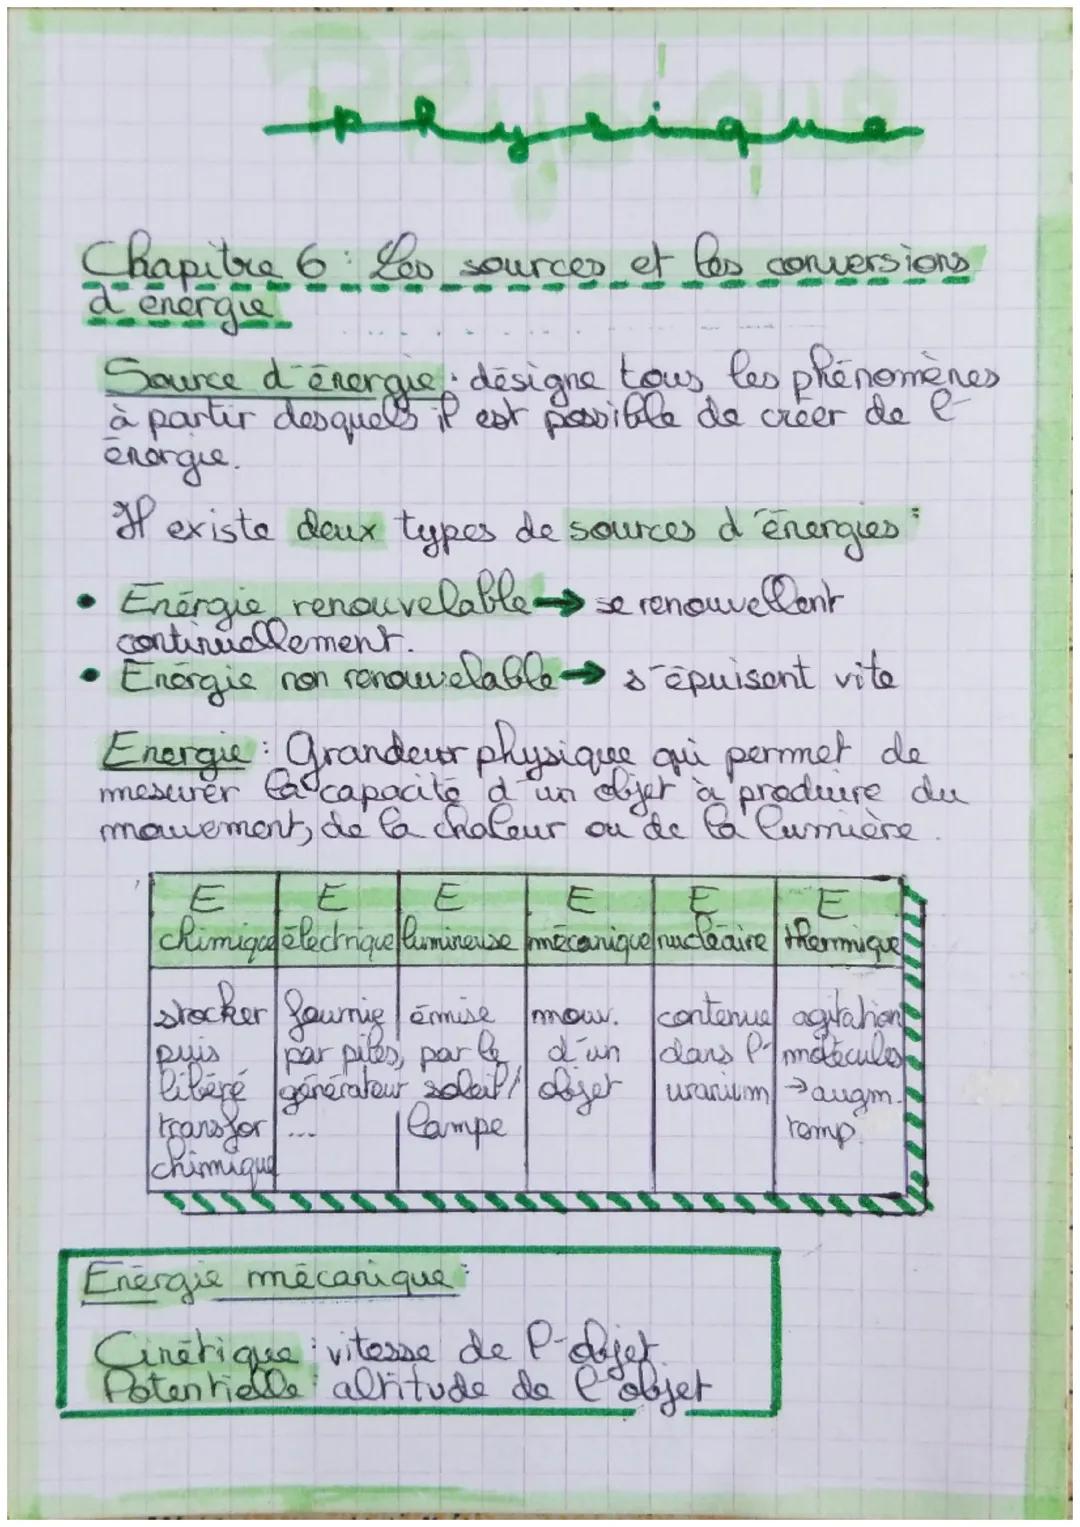 Physique
Chapitre 6 : Les sources et les conversions
d'énergie
Source d'énergie : désigne tous les phénomènes
à partir desquels il est possible de créer de l'
énergie.
Il existe deux types de sources d'énergies :
• Energie renouvelable → se renouvellent
continuellement.
• Energie non renouvelable → s'épuisent vite
Energie : Grandeur physique qui permet de
mesurer la capacité d'un objet à produire du
mouvement, de la chaleur ou de la lumière.
E E E E E E
chimique électrique lumineuse mécanique nucléaire thermique
stocker fournie émise mouv. contenue agitation
puis par piles, par le d'un dans l' molécules
libéré générateur soleil/ objet uranium → augm.
transfor ... lampe temp.
chimique
Energie mécanique :
Cinétique : vitesse de l'objet
Potentielle : altitude de l'objet